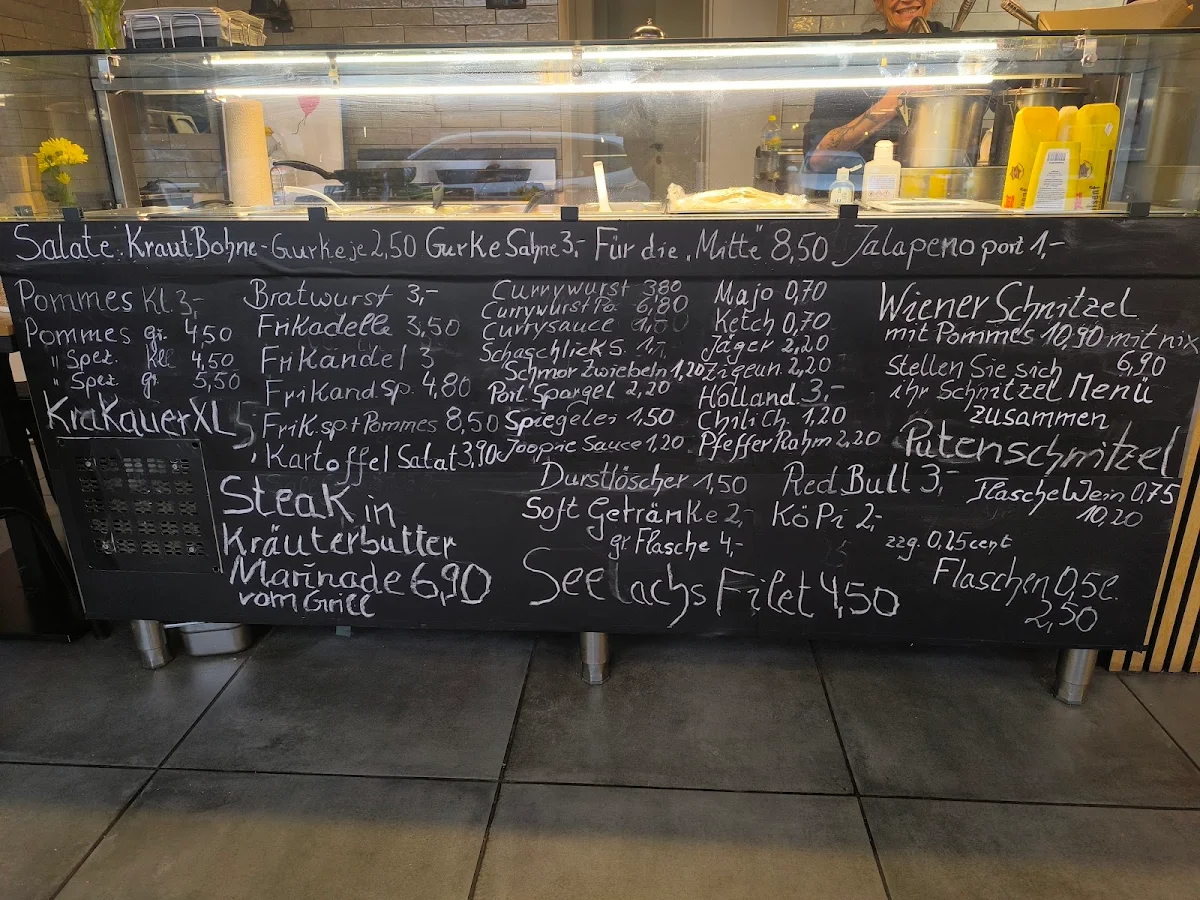 Salate: Kraut Bohne - Gurke je 2,50 Gurke Sahne 3,- Für die "Mitte" 8,50 Jalapeno port 1,-
Pommes Kl. 3,-
Pommes gr. 4,50
" Spez. Kl 4,50
" Spez. gr 5,50
Krakauer XL 5,
Bratwurst 3,-
Frikadelle 3,50
Frikandel 3
Frikand Sp. 4,80
Frik.sp+Pommes 8,50
Kartoffel Salat 3,90
Currywurst 3,80
Currywurst Po. 6,80
Currysauce
Schaschlick S. 1,-
Schmorzwiebeln 1,20
Port. Spargel 2,20
Spiegelei 1,50
Joopie Sauce 1,20
Majo 0,70
Ketch 0,70
Jäger 2,20
Zigeun. 2,20
Holland. 3,-
Chilich 1,20
Pfeffer Rahm 2,20
Wiener Schnitzel
mit Pommes 10,90 mit nix
6,90
Stellen Sie sich
ihr Schnitzel Menü
zusammen
Putenschnitzel
Steak in
Kräuterbutter
Marinade 6,90
vom Grill
Durstlöscher 1,50
Soft Getränke 2,-
gr Flasche 4,-
Red Bull 3,-
KöPi 2,-
Flasche Wein 0,75
10,20
zzg. 0,25 cent
Flaschen 0,5l.
2,50
Seelachs Filet 4,50